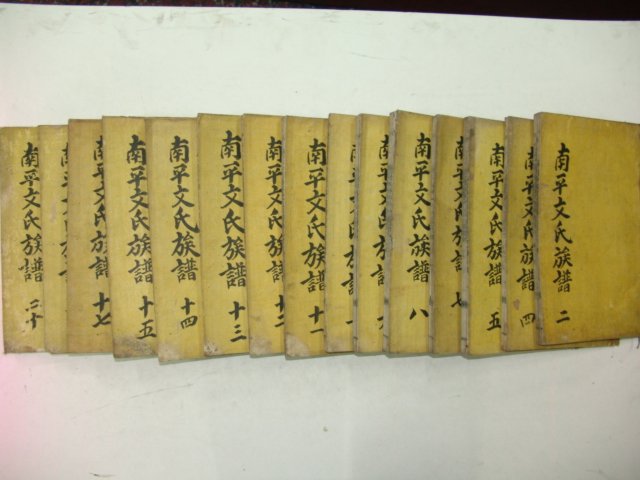 南平文氏族譜 二
南平文氏族譜 四
南平文氏族譜 五
南平文氏族譜 七
南平文氏族譜 八
南平文氏族譜
南平文氏族譜
南平文氏族譜 十一
南平文氏族譜 十二
南平文氏族譜 十三
南平文氏族譜 十四
南平文氏族譜 十五
南平文氏族譜 十七
南平文氏族譜 二十